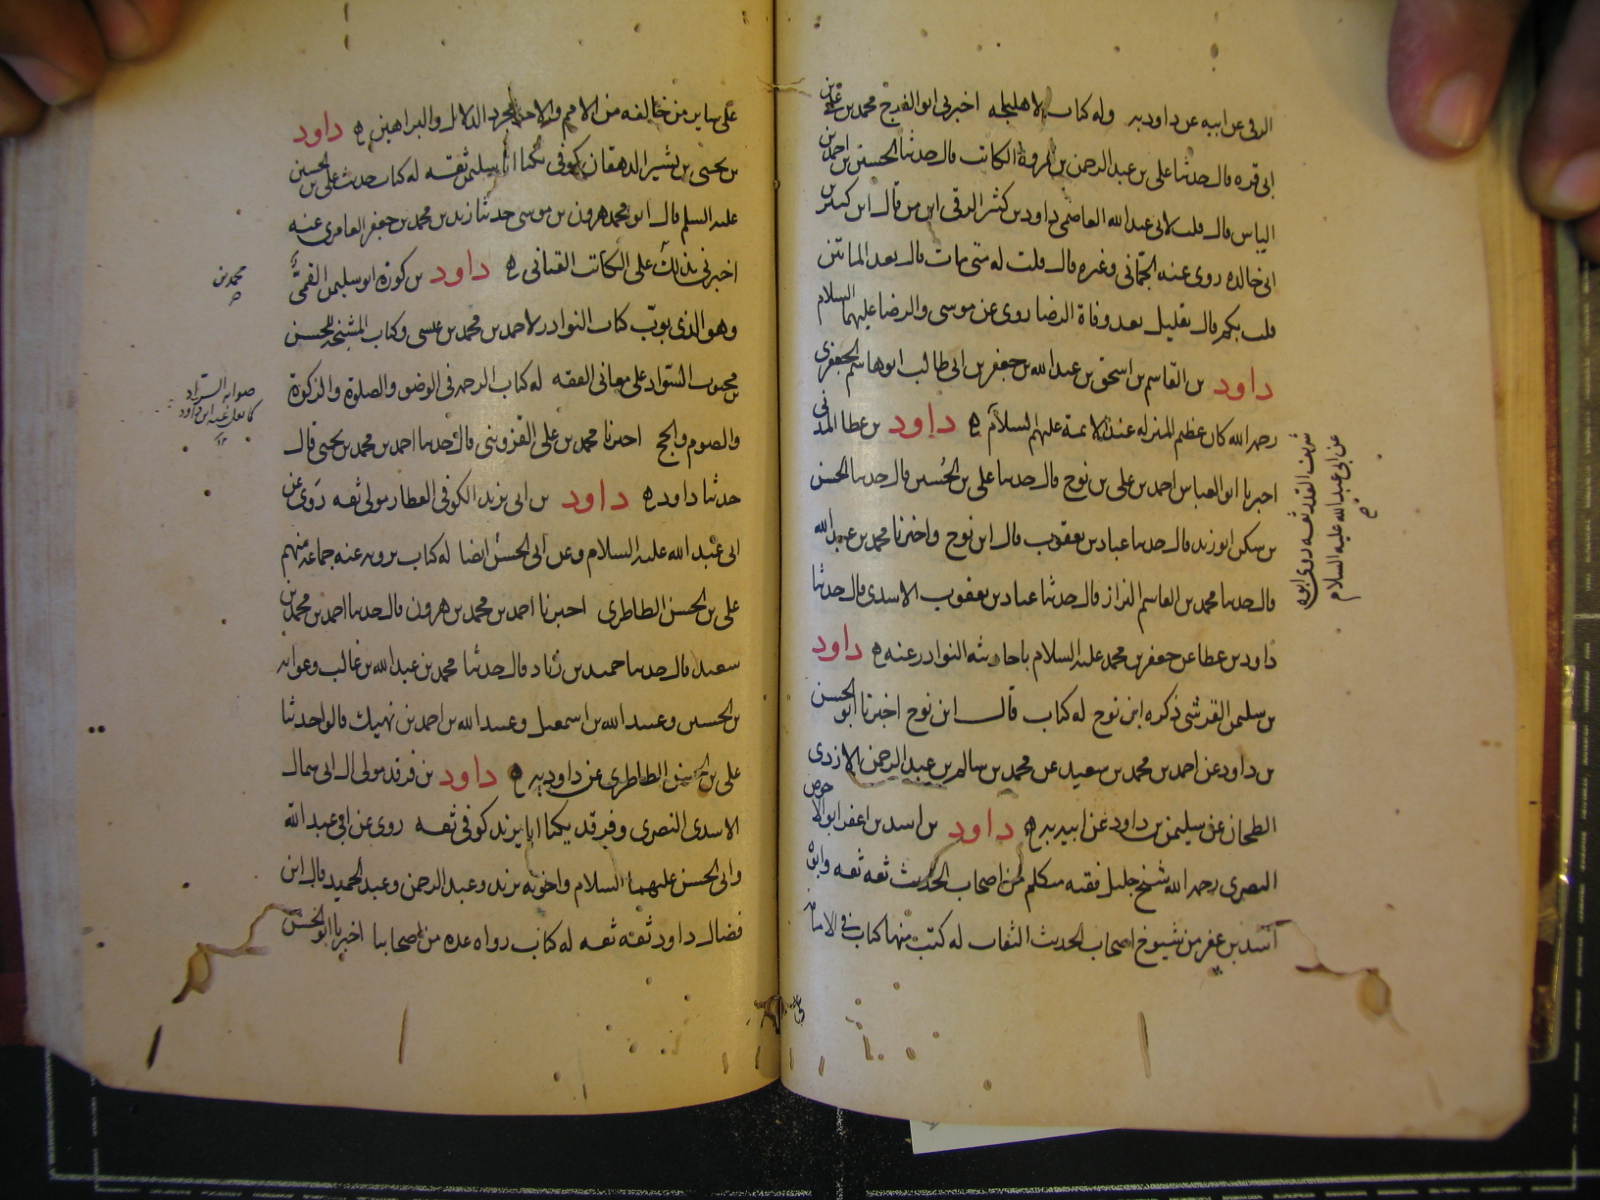 الرقى عن ابيه عن داود به وله كتاب الاهليلجه اخبرنى ابو الفرج محمد بن على بن
ابى قره قال حدثنا على بن عبد الرحمن بن عروة الكاتب قال حدثنا الحسين بن احمد بن
الياس قال قلت لابى عبد الله العاصمى داود بن كثير الرقى ابن من قال ابن كثير بن
ابى خالده روى عنه الجمانى وغيره قال قلت له متى مات قال بعد الماتين
قلت بكم قال بقليل بعد وفاة الرضا روى عن موسى والرضا عليهما السلام
داود بن القاسم بن اسحق بن عبد الله بن جعفر بن ابى طالب ابو هاشم الجعفرى
رحمه الله كان عظيم المنزله عند الائمة عليهم السلام ه داود بن عطا المدنى
اخبرنا ابو العباس احمد بن على بن نوح قال حدثنا على بن الحسين قال حدثنا الحسن
بن سكن ابو زيد قال حدثنا عباد بن يعقوب قال ابن نوح واخبرنا محمد بن عبد الله
قال حدثنا محمد بن القاسم البزاز قال حدثنا عباد بن يعقوب الاسدى قال حدثنا
داود بن عطا عن جعفر بن محمد عليه السلام باحاديثه النوادر عنه ه داود
بن سليمن القرشى ذكره ابن نوح له كتاب قال ابن نوح اخبرنا ابو الحسن
بن داود عن احمد بن محمد بن سعيد عن محمد بن سالم بن عبد الرحمن الازدى
الطحان عن سليمن بن داود عن ابيه به ه داود بن اسد بن اعفر ابو الاحوص
البصرى رحمه الله شيخ جليل فقيه متكلم من اصحاب الحديث ثقه ثقه وابوه
اسد بن عفر من شيوخ اصحاب الحديث الثقات له كتب منها كتاب فى الامامه
شريف القدر ثقه روى ابوه
عن ابى عبد الله عليه السلام
صح
على ساير من خالفه من الامم والاخر مجرد الدلائل والبراهين ه داود
بن يحيى بن بشير الدهقان كوفى يكنا ابا سليمن ثقه له كتاب حديث على بن الحسين
عليه السلم قال ابو محمد هرون بن موسى حدثنا زيد بن محمد بن جعفر العامرى عنه
اخبرنى بذلك على الكاتب القنانى ه داود بن كورة ابو سليمن القمى
وهو الذى بوب كتاب النوادر لاحمد بن محمد بن عيسى وكتاب المشيخه للحسن
بن محبوب السراد على معانى الفقه له كتاب الرحمه فى الوضو والصلوة والزكوة
والصوم والحج اخبرنا محمد بن على القزوينى قال حدثنا احمد بن محمد بن يحيى قال
حدثنا داود ه داود بن ابى يزيد الكوفى العطار مولى ثقه روى عن
ابى عبد الله عليه السلام وعن ابى الحسن ايضا له كتاب يرويه عنه جماعه منهم
على بن الحسن الطاطرى اخبرنا احمد بن محمد بن هرون قال حدثنا احمد بن محمد بن
سعيد قال حدثنا حميد بن زياد قال حدثنا محمد بن عبد الله بن غالب وعوانه
بن الحسين وعبيد الله بن اسمعيل وعبيد الله بن احمد بن نهيك قالوا حدثنا
على بن الحسن الطاطرى عن داود به ه داود بن فرقد مولى ال ابى سمال
الاسدى النصرى وفرقد يكنا ابا يزيد كوفى ثقه روى عن ابى عبد الله
وابى الحسن عليهما السلام واخوته يزيد وعبد الرحمن وعبد الحميد قال ابن
فضال داود ثقه ثقه له كتاب رواه عده من اصحابنا اخبرنا ابو الحسن
محمد بن
صح
صوابه السراد
كما نقل عنه ابن داود